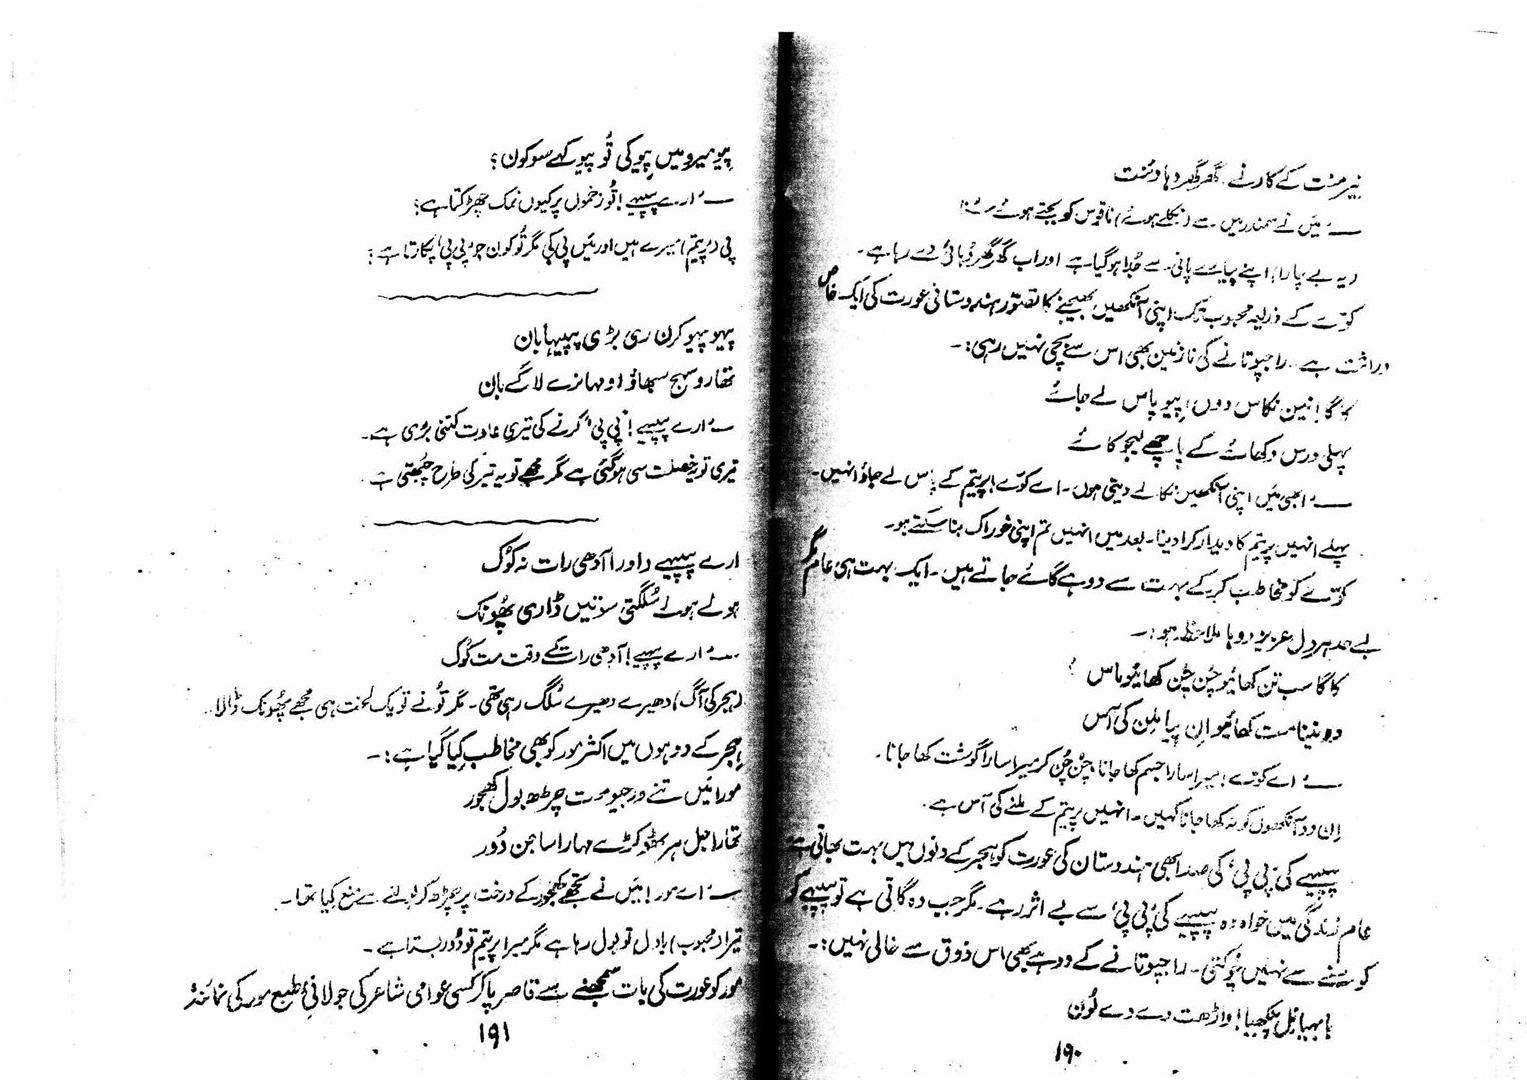 نیرمنت کے کارنے ۔ گھر گھر دہادنت
ـــ میں نے سمندر میں سے (نکلے ہوئے) ناقوس کو بجتے ہوئے سُنا
(یہ بے چارا) اپنے پیارے پانی سے جُدا ہوگیا ہے اور اب گھر گھر دُہائی دے رہا ہے۔
کوّے کے ذریعہ محبوب تک اپنی آنکھیں بھیجنے کا تصّور ہندوستانی عورت کی ایک خاص
وراثت ہے۔ راجپوتانے کی نازنین بھی اس سے بچی نہیں رہی:۔
کاگا! نین نکاس دوں، پیو پاس لے جائے
پہلی درس دکھائے کے پاچھے لیجو کھائے
ـــ ابھی میں اپنی آنکھیں نکالے دیتی ہوں۔ اے کوّے! پریتم کے پاس لے جاؤ انہیں۔
پہلے انہیں پریتم کا دیدار کرا دینا۔ بعد میں انہیں تم اپنی خوراک بنا سکتے ہو۔
کوّے کو مخاطب کر کے بہت سے دوہے گائے جاتے ہیں۔ ایک بہت ہی عام مگر
بے حد ہر دل عزیز دوہا ملاحظہ ہو:۔
کاگا سب تن کھائیو چُن چُن کھائیو ماس
دو نینا مت کھائیو اِن پیا مِلن کی آس
ـــ اے کوّے! میرا سارا جسم کھا جانا، چُن چُن کر میرا سارا گوشت کھا جانا۔
اِن دو آنکھوں کو نہ کھا جانا کہیں۔ انہیں پریتم کے ملنے کی آس ہے۔
پپیہے کی 'پی پی' کی صدا بھی ہندوستان کی عورت کو ہجر کے دنوں میں بہت بھاتی ہے
عام زندگی میں خواہ وہ پپیہے کی 'پی پی' سے بے اثر رہے۔ مگر جب وہ گاتی ہے تو پپیہے کو
کوسنے سے نہیں چوُکتی۔ راجپوتانے کے دوہے بھی اس ذوق سے خالی نہیں:۔
پنکھیا! واڑھت دے دے لُون
۱۹۰
پیو میرو میں پیو کی تُو پیو کہے سو کون؟
ـــ ارے پپیہے! تُو زخموں پر کیوں نمک چھڑکتا ہے؟
پی (پریتم) میرے ہیں اور میں پی کی مگر تُو کون جو 'پی پی' پکارتا ہے؟
پیو پیو کرن ری بڑی پپیہا بان
تھارو سہج سبھاؤ او مہانرے لاگے بان
ـــ ارے پپیہے! 'پی پی' کرنے کی تیری عادت کتنی بُری ہے۔
تیری تو یہ خصلت سی ہوگئی ہے مگر مجھے تو یہ تیر کی طرح چُبھتی ہے۔
ارے پپیہے داورا آدھی رات نہ کوُک
ہولے ہولے سُلگتی سو تیں ڈاری پھُونک
ـــ ارے پپیہے! آدھی رات کے وقت مت کوُک
(ہجر کی آگ) دھیرے دھیرے سُلگ رہی تھی۔ مگر تُو نے تو یک لخت ہی مجھے پھُونک ڈالا۔
ہِجر کے دوہوں میں اکثر مور کو بھی مخاطب کیا گیا ہے:۔
مورا میں تنے ورجیو مت چڑھ بول کھجور
تھارا جل ہر مہارا ساجن دُور
ـــ اے مور! میں نے تجھے کھجور کے درخت پر چڑھ کر بولنے سے منع کیا تھا۔
تیرا (محبوب) بادل تو بول رہا ہے مگر میرا پریتم تو دُور بستا ہے۔
مور کو عورت کی بات سمجھنے سے قاصر پا کر کسی عوامی شاعر کی جولانیٔ طبع مور کی نمائندہ
۱۹۱